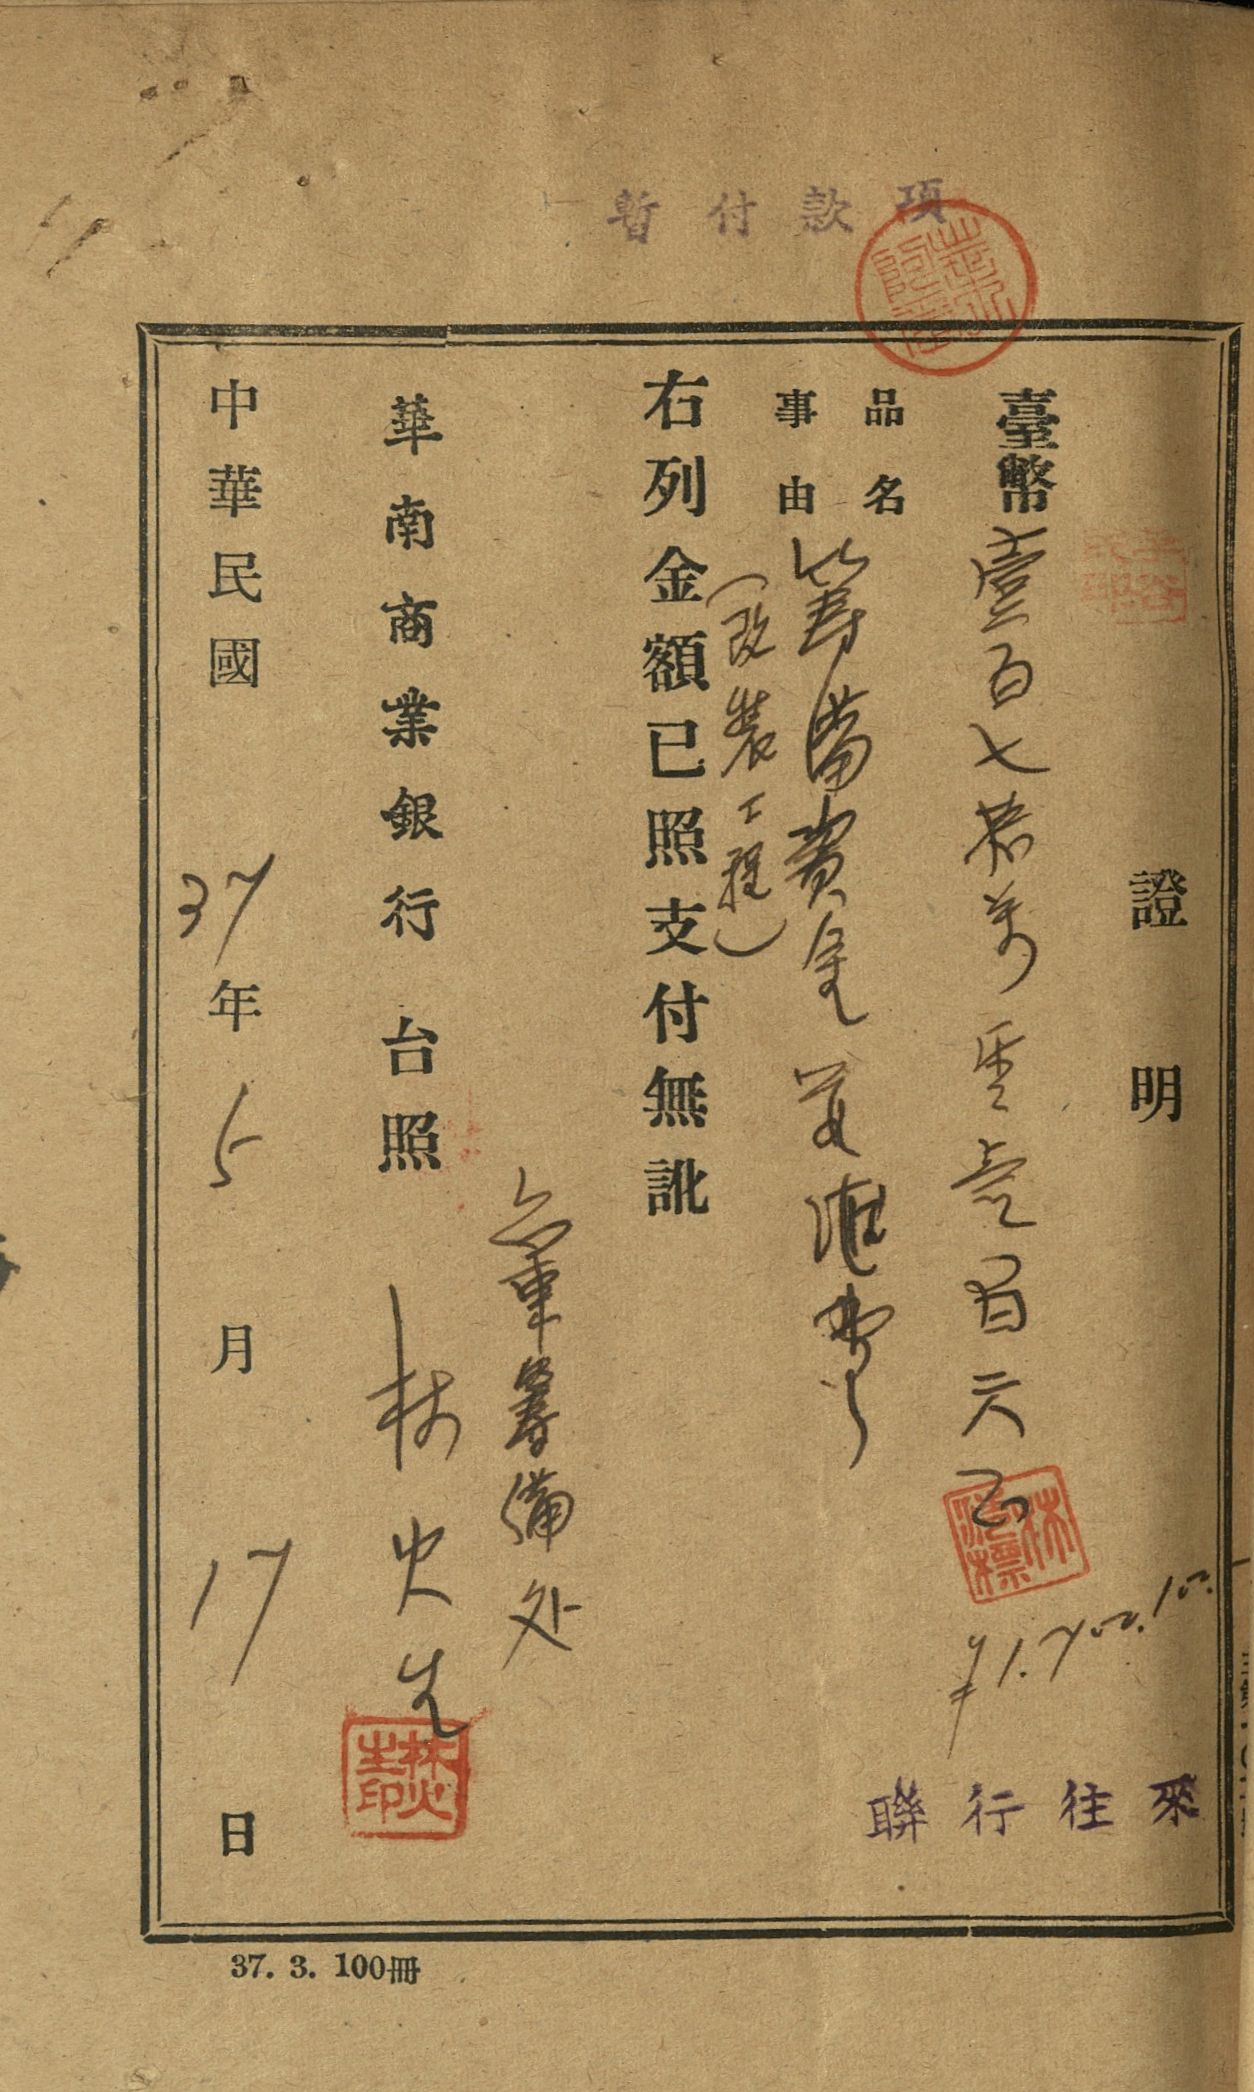 暫付款項
證明
臺幣壹百七拾萬零壹百元正
品名
事由
籌備費
(改裝工程)
右列金額已照支付無訛
籌備处
華南商業銀行台照
林火生
林火生印
中華民國37年5月17日
¥1.700.100.
聯行往來
37. 3. 100冊